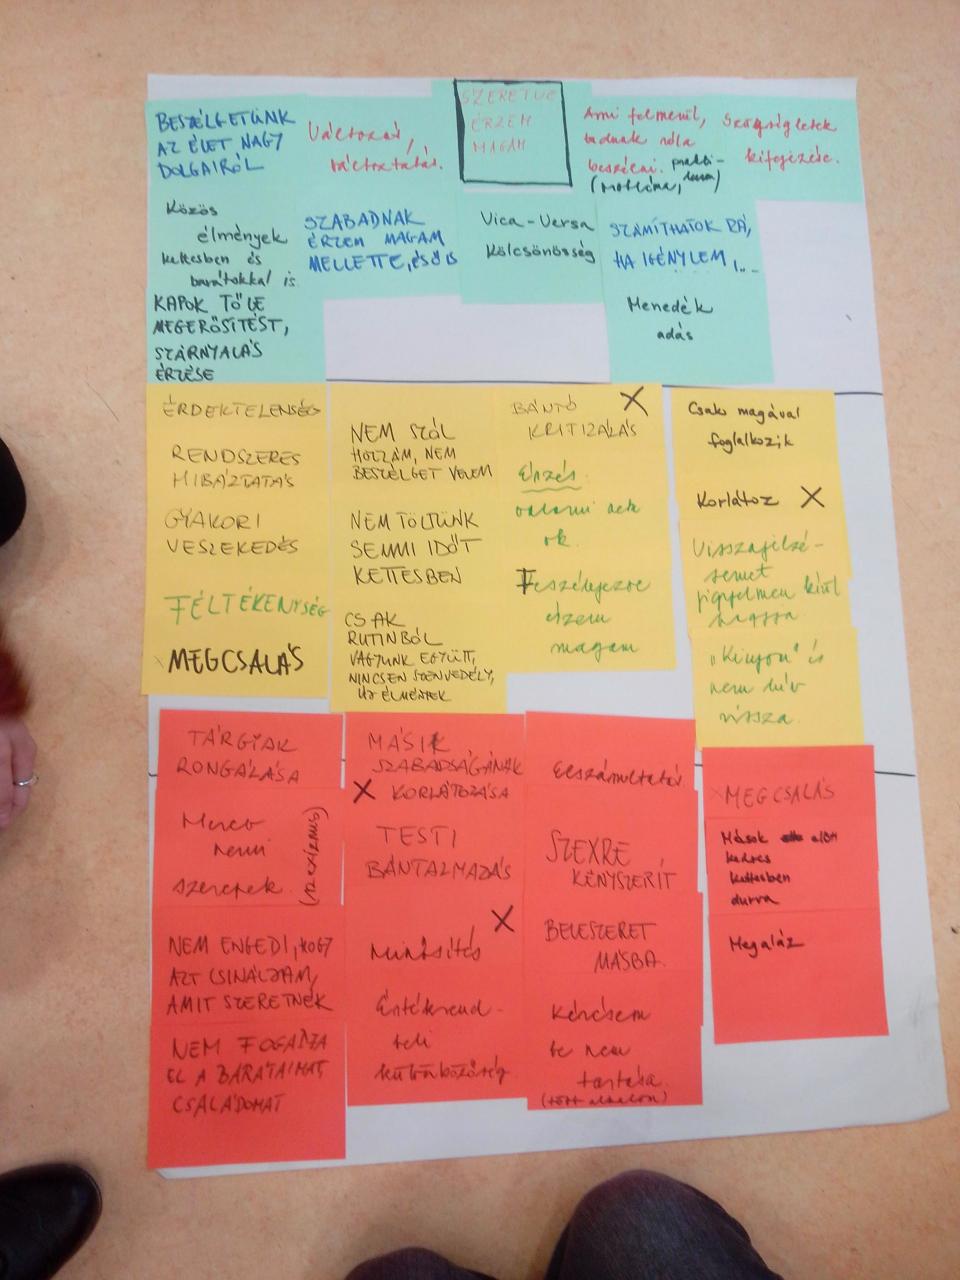 BESZÉLGETÜNK
AZ ÉLET NAGY
DOLGAIRÓL
Változás,
változtatás.
SZERETVE
ÉRZEM
MAGAM
Ami felmerül,
tudunk róla
beszélni.
Szükségletek
kifejezése.
Közös
élmények
kettesben és
barátokkal is
SZABADNAK
ÉRZEM MAGAM
MELLETTE, ÉS Ő IS
Vica-Versa
Kölcsönösség
SZÁMÍTHATOK RÁ,
HA IGÉNYLEM,...
KAPOK TŐLE
MEGERŐSÍTÉST,
SZÁRNYALÁS
ÉRZÉSE
Menedék
adás
ÉRDEKTELENSÉG
RENDSZERES
HIBÁZTATÁS
GYAKORI
VESZEKEDÉS
FÉLTÉKENYSÉG
MEGCSALÁS
NEM SZÓL
HOZZÁM, NEM
BESZÉLGET VELEM
NEM TÖLTÜNK
SEMMI IDŐT
KETTESBEN
CSAK
RUTINBÓL
VAGYUNK EGYÜTT,
NINCSEN SZENVEDÉLY,
ÚJ ÉLMÉNYEK
BÁNTÓ X
KRITIZÁLÁS
Érzés:
valami
ok.
Veszélyezve
érzem
magam
Csak magával
foglalkozik
Korlátoz X
Visszajelzé-
semet
figyelmen kívül
hagyja
"Kinyom" és
nem hív
vissza.
TÁRGYAK
RONGÁLÁSA
Mert
nemi
szerepek.
(szexizmus)
NEM ENGEDI, HOGY
AZT CSINÁLJAM,
AMIT SZERETNÉK
NEM FOGADJA
EL A BARÁTAIMAT
CSALÁDOMAT
MÁSIK
SZABADSÁGÁNAK
X KORLÁTOZÁSA
TESTI
BÁNTALMAZÁS
X
Minősítés
Értékrend-
beli
különbözőség
Elszámoltatás
SZEXRE
KÉNYSZERÍT
BELESZERET
MÁSBA.
Kérésem
be nem
tartása.
(több alkalom)
X MEGCSALÁS
Mások előtt
kedves
kettesben
durva
Megaláz